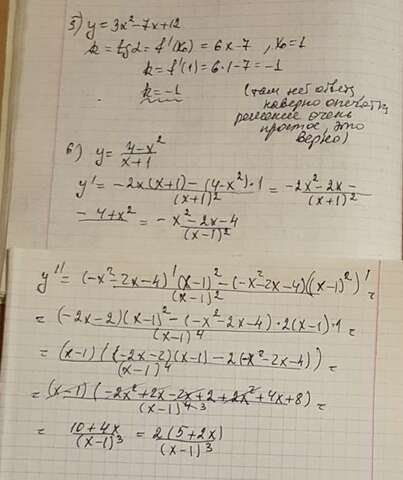 5) y = 3x² - 7x + 12
k = tg α = f'(x₀) = 6x - 7 , x₀ = 1
k = f'(1) = 6·1 - 7 = -1
k = -1
(там нет ответа
наверно опечатка
решение очень
простое, это
верно)
6) y = (4 - x²)/(x + 1)
y' = (-2x(x+1) - (4-x²)·1)/(x+1)² = (-2x² - 2x -
- 4 + x²)/(x+1)² = (-x² - 2x - 4)/(x-1)²
y'' = ((-x² - 2x - 4)'(x-1)² - (-x² - 2x - 4)((x-1)²)')/(x-1)² =
= ((-2x-2)(x-1)² - (-x² - 2x - 4)·2(x-1)·1)/(x-1)⁴ =
= ((x-1)((-2x-2)(x-1) - 2(-x² - 2x - 4)))/(x-1)⁴ =
= ((x-1)(-2x² + 2x - 2x + 2 + 2x² + 4x + 8))/(x-1)⁴ ³ =
= (10 + 4x)/(x-1)³ = 2(5 + 2x)/(x-1)³